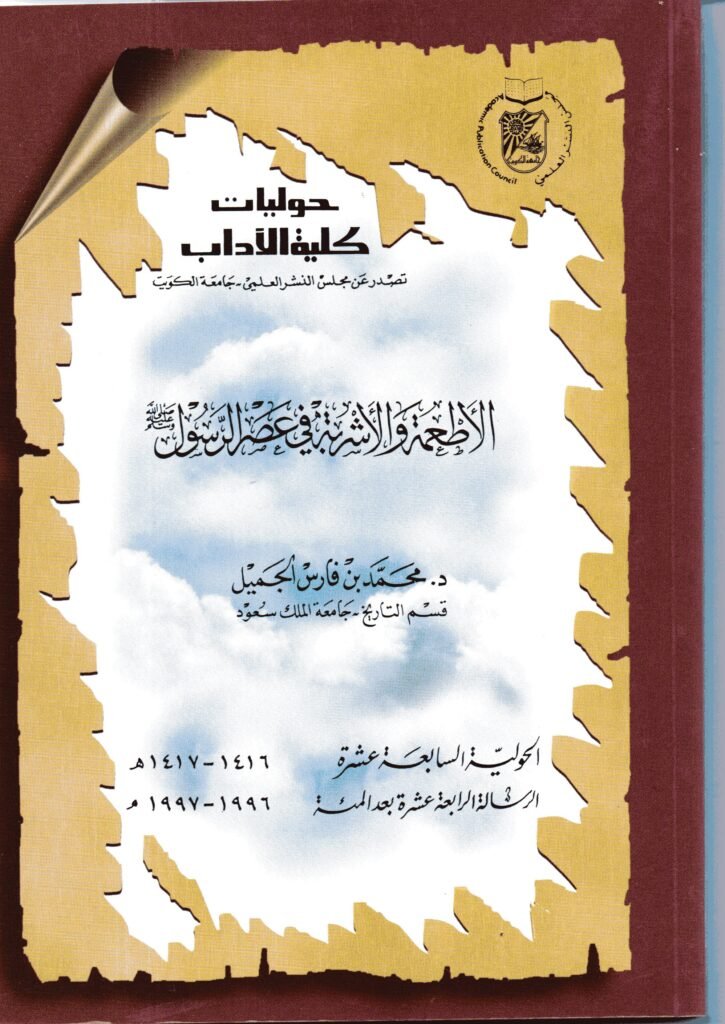 مجلس النشر العلمي
Academic Publication Council
جامعة الكويت
حوليات
كلية الآداب
تصدر عن مجلس النشر العلمي - جامعة الكويت
الأطعمة والأشربة في عصر الرسول ﷺ
د. محمد بن فارس الجميل
قسم التاريخ - جامعة الملك سعود
الحولية السابعة عشرة ١٤١٦ - ١٤١٧ هـ
الرسالة الرابعة عشرة بعد المئة ١٩٩٦ - ١٩٩٧ م